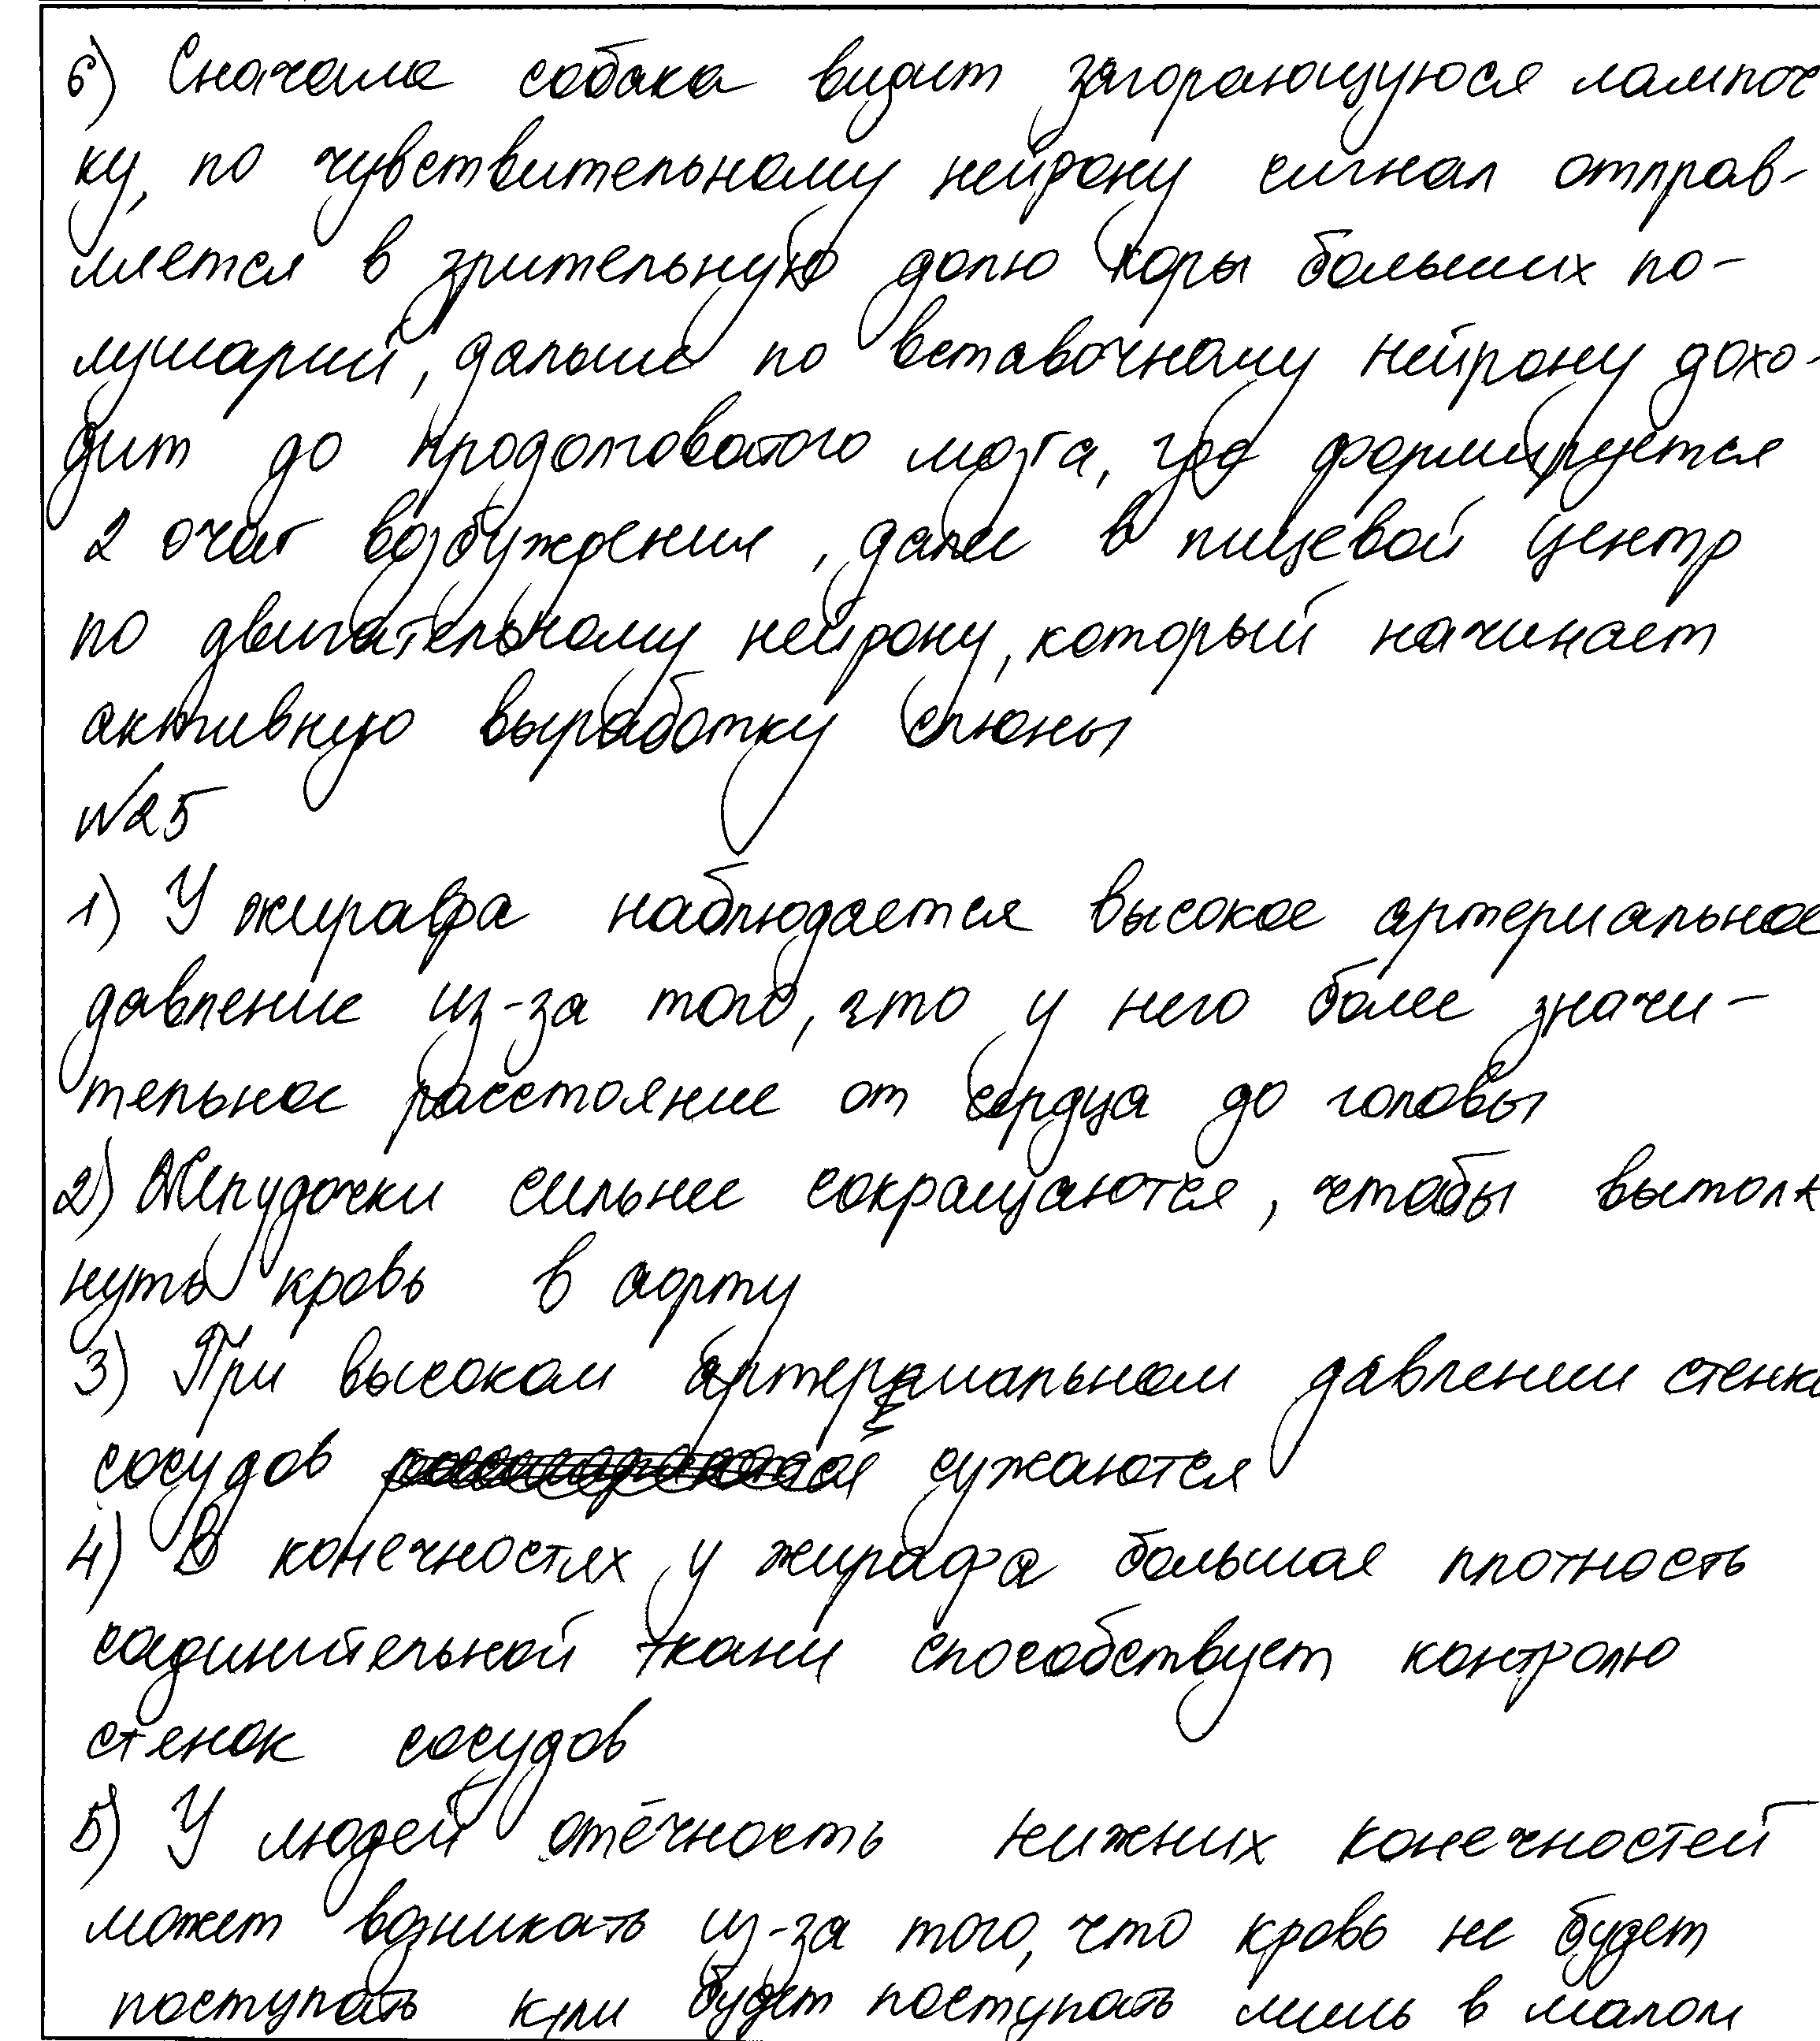 6) Сначала собака видит загорающуюся лампоч
ку, по чувствительному нейрону сигнал отправ-
ляется в зрительную долю коры больших по-
лушарий, дальше по вставочному нейрону дохо-
дит до продолговатого мозга, где формируется
2 очаг возбуждения, далее в пищевой центр
по двигательному нейрону, который начинает
активную выработку слюны
№25
1) У жирафа наблюдается высокое артериальное
давление из-за того, что у него более значи-
тельное расстояние от сердца до головы
2) Желудочки сильнее сокращаются, чтобы вытолк
нуть кровь в аорту
3) При высоком артериальном давлении стенки
сосудов сужаются
4) В конечностях у жирафа большая плотность
соединительной ткани способствует контролю
стенок сосудов
5) У людей отёчность нижних конечностей
может возникать из-за того, что кровь не будет
поступать или будет поступать лишь в малом